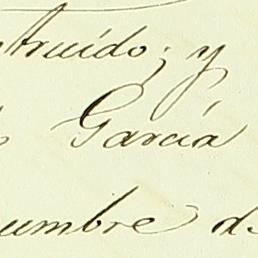 truido; y
García
umbre de